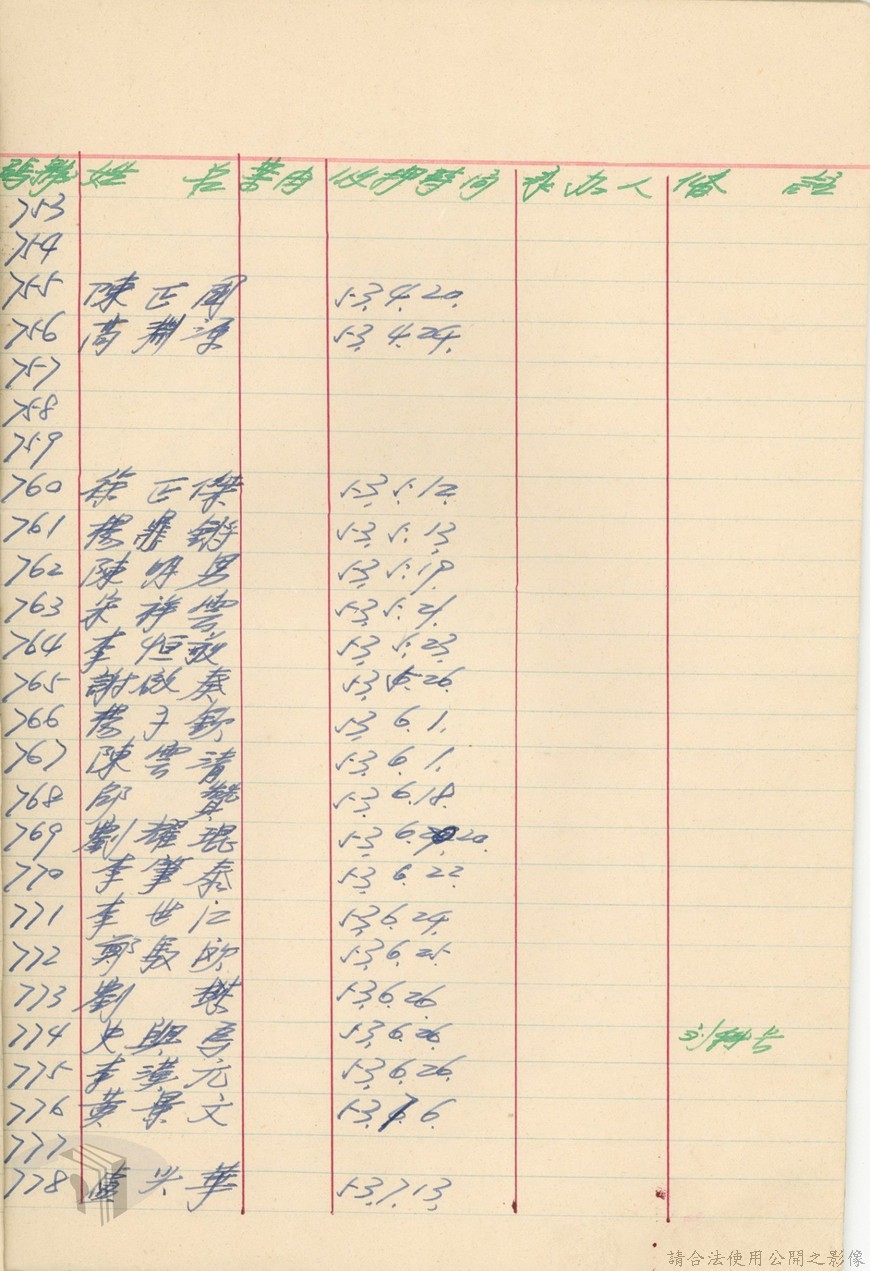 號難 姓 名 案由 收押時间 承办人 備 註
753
754
755 陳正国 53.4.20.
756 高 53.4.24.
757
758
759
760 徐正傑 53.5.12.
761 楊鼎鏘 53.5.13.
762 陳明男 53.5.19.
763 宋祥雲 53.5.21.
764 李恒 53.5.23.
765 謝啟泰 53.5.26.
766 楊子欽 53.6.1.
767 陳雲清 53.6.1.
768 邱 贊 53.6.18.
769 劉耀琨 53.6.20.
770 李肇泰 53.6.22.
771 李世江 53.6.24.
772 鄭馭欧 53.6.25.
773 劉 53.6.26.
774 史與為 53.6.26.
775 李漢元 53.6.26.
776 黃景文 53.7.6.
777
778 盧兴華 53.7.13.
請合法使用公開之影像